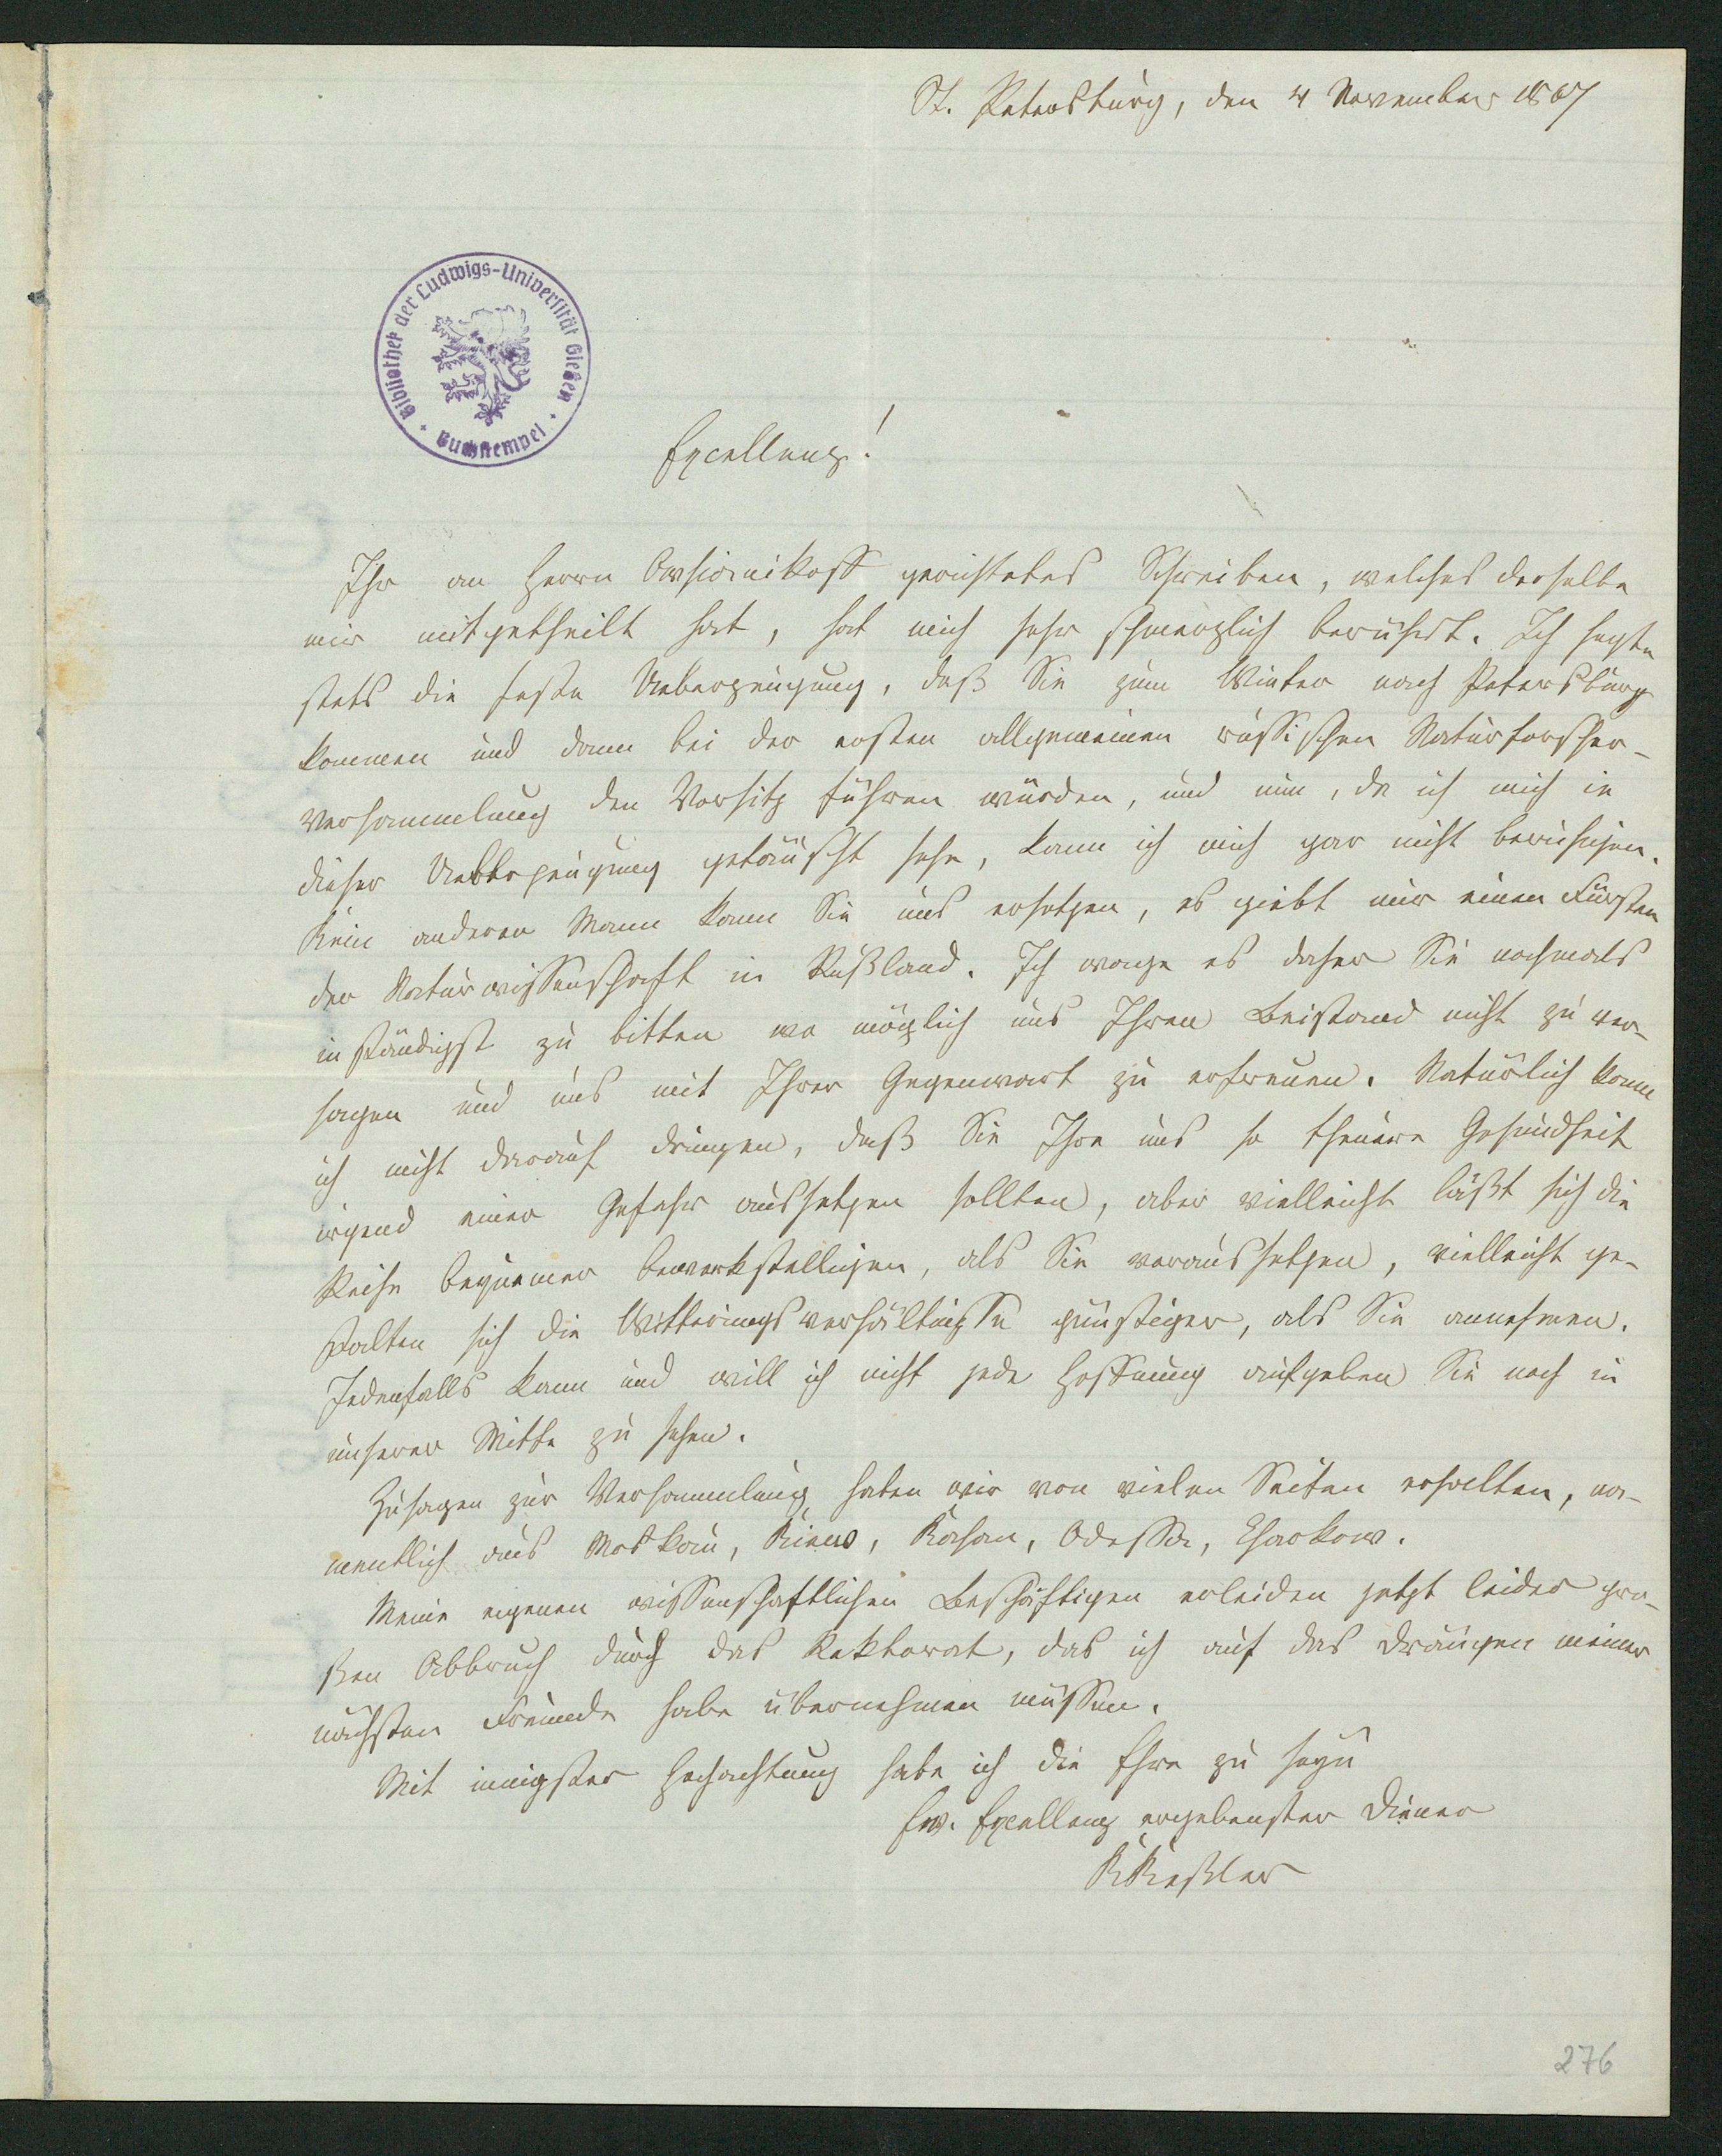 St. Petersburg, den 4 November 1867
Bibliothek der Ludwigs-Universität Gießen
Buchstempel
Excellenz!
Ihr an Herrn Owsiannikoff gerichtetes Schreiben, welches derselbe
mir mitgetheilt hat, hat mich sehr schmerzlich berührt. Ich hegte
stets die feste Ueberzeugung, daß Sie zum Winter nach Petersburg
kommen und dann bei der ersten allgemeinen russischen Naturforscher-
versammlung den Vorsitz führen würden, und nun, da ich mich in
dieser Ueberzeugung getäuscht sehe, kann ich mich gar nicht beruhigen.
Kein anderer Mann kann Sie uns ersetzen, es giebt nur einen Fürsten
der Naturwissenschaft in Rußland. Ich wage es daher Sie nochmals
inständigst zu bitten wo möglich uns Ihren Beistand nicht zu ver-
sagen und uns mit Ihrer Gegenwart zu erfreuen. Natürlich kann
ich nicht darauf dringen, daß Sie Ihre uns so theuere Gesundheit
irgend einer Gefahr aussetzen sollten, aber vielleicht läßt sich die
Reise bequemer bewerkstelligen, als Sie voraussetzen, vielleicht ge-
stalten sich die Witterungsverhältnisse günstiger, als Sie annehmen.
Jedenfalls kann und will ich nicht jede Hoffnung aufgeben Sie noch in
unserer Mitte zu sehen.
Zusagen zur Versammlung haben wir von vielen Seiten erhalten, na-
mentlich aus Moskau, Kiew, Kasan, Odessa, Charkow.
Meine eigenen wissenschaftlichen Beschäftigen erleiden jetzt leider gro-
ßen Abbruch durch das Rektorat, das ich auf das Drängen meiner
nächsten Freunde habe übernehmen müssen.
Mit innigster Hochachtung habe ich die Ehre zu seyn
Ew. Excellenz ergebenster Diener
K Keßler
276